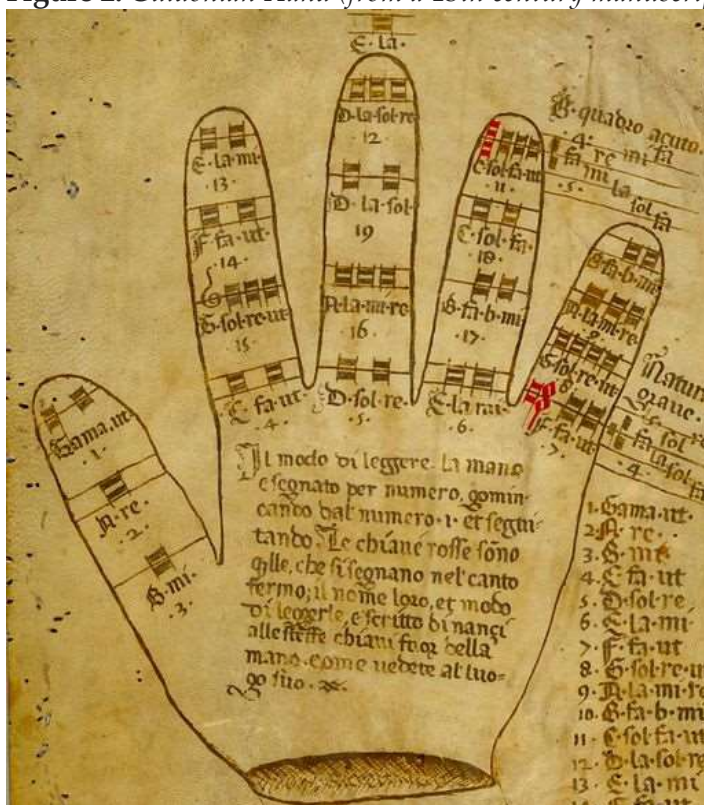 Guidonian Hand (from a 15th century manuscrip
E·la·
D·la·sol·re
12
D·la·sol·
19
A·la·mi·re
·16·
D·sol·re·
·5·
E·la·mi·
·13·
F·fa·ut·
·14·
G·sol·re·ut·
·15·
C·fa·ut·
·4·
C·sol·fa·ut
·11·
C·sol·fa·
·18·
B·fa·b·mi
·17·
E·la·mi·
·6·
B·fa·b·mi
A·la·mi·re·
·9·
G·sol·re·ut
8
F·fa·ut·
·7·
Gama·ut·
·1·
A·re·
·2·
B·mi·
·3·
B·quadro acuto.
·4· re mi fa
fa mi la sol fa
·5·
Natur
grave.
fa sol
la sol fa
·4·
Il modo di leggere la mano
e segnato per numero, comin-
cando dal numero ·1· et segui-
tando. Le chiaue rosse sono
qlle, che si segnano nel canto
fermo; il nome loro, et modo
di leggerle, e scritto dinançi
alle stesse chiaui fuor della
mano come uedete al luo-
go suo.
1·Gama·ut·
2·A·re·
3·B·mi
4·C·fa·ut
5·D·sol·re
6·E·la·mi
7·F·fa·ut
8·G·sol·re·u
9·A·la·mi·re
10·B·fa·b·mi
11·C·sol·fa·ut
12·D·la·sol·re
13·E·la·mi